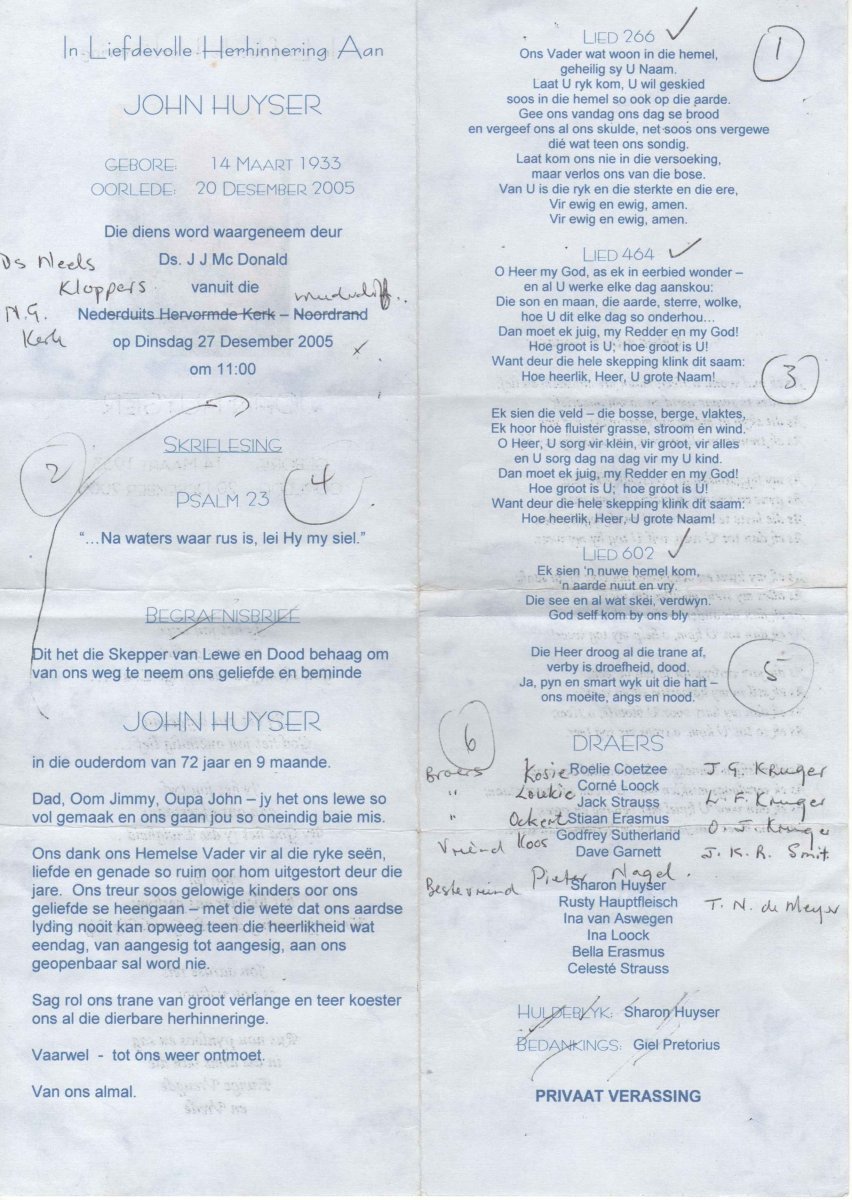 In Liefdevolle Herhinnering Aan
JOHN HUYSER
GEBORE: 14 MAART 1933
OORLEDE: 20 DESEMBER 2005
Die diens word waargeneem deur
Ds. J J Mc Donald
Ds Neels
Kloppers
vanuit die
N.G.
Kerk
Nederduits Hervormde Kerk – Noordrand
op Dinsdag 27 Desember 2005
om 11:00
2
SKRIFLESING
4
PSALM 23
“…Na waters waar rus is, lei Hy my siel.”
BEGRAFNISBRIEF
Dit het die Skepper van Lewe en Dood behaag om
van ons weg te neem ons geliefde en beminde
JOHN HUYSER
in die ouderdom van 72 jaar en 9 maande.
Dad, Oom Jimmy, Oupa John – jy het ons lewe so
vol gemaak en ons gaan jou so oneindig baie mis.
Ons dank ons Hemelse Vader vir al die ryke seën,
liefde en genade so ruim oor hom uitgestort deur die
jare. Ons treur soos gelowige kinders oor ons
geliefde se heengaan – met die wete dat ons aardse
lyding nooit kan opweeg teen die heerlikheid wat
eendag, van aangesig tot aangesig, aan ons
geopenbaar sal word nie.
Sag rol ons trane van groot verlange en teer koester
ons al die dierbare herhinneringe.
Vaarwel - tot ons weer ontmoet.
Van ons almal.
LIED 266
1
Ons Vader wat woon in die hemel,
geheilig sy U Naam.
Laat U ryk kom, U wil geskied
soos in die hemel so ook op die aarde.
Gee ons vandag ons dag se brood
en vergeef ons al ons skulde, net soos ons vergewe
dié wat teen ons sondig.
Laat kom ons nie in die versoeking,
maar verlos ons van die bose.
Van U is die ryk en die sterkte en die ere,
Vir ewig en ewig, amen.
Vir ewig en ewig, amen.
LIED 464
O Heer my God, as ek in eerbied wonder –
en al U werke elke dag aanskou:
Die son en maan, die aarde, sterre, wolke,
hoe U dit elke dag so onderhou…
Dan moet ek juig, my Redder en my God!
Hoe groot is U; hoe groot is U!
Want deur die hele skepping klink dit saam:
Hoe heerlik, Heer, U grote Naam!
3
Ek sien die veld – die bosse, berge, vlaktes,
Ek hoor hoe fluister grasse, stroom én wind.
O Heer, U sorg vir klein, vir groot, vir alles
en U sorg dag na dag vir my U kind.
Dan moet ek juig, my Redder en my God!
Hoe groot is U; hoe groot is U!
Want deur die hele skepping klink dit saam:
Hoe heerlik, Heer, U grote Naam!
LIED 602
Ek sien ‘n nuwe hemel kom,
‘n aarde nuut en vry.
Die see en al wat skei, verdwyn.
God self kom by ons bly
Die Heer droog al die trane af,
verby is droefheid, dood.
Ja, pyn en smart wyk uit die hart –
ons moeite, angs en nood.
5
6
DRAERS
Broers Kosie Roelie Coetzee J. G. Kruger
Corné Loock
" Loukie Jack Strauss L. F. Kruger
" Ockert Stiaan Erasmus O. J. Kruger
Vriend Koos Godfrey Sutherland
Dave Garnett J. K. R. Smit.
Bestevriend Pieter Nagel.
Sharon Huyser
Rusty Hauptfleisch T. N. de Meyer
Ina van Aswegen
Ina Loock
Bella Erasmus
Celesté Strauss
HULDEBLYK: Sharon Huyser
BEDANKINGS: Giel Pretorius
PRIVAAT VERASSING